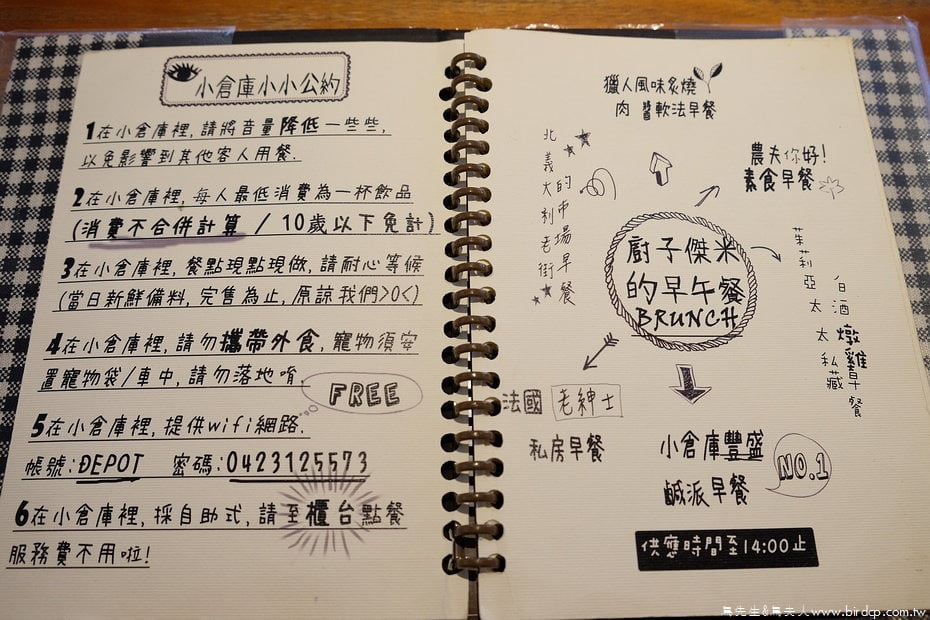 小倉庫小小公約
1在小倉庫裡,請將音量降低一些些,
以免影響到其他客人用餐.
2在小倉庫裡,每人最低消費為一杯飲品
(消費不合併計算 / 10歲以下免計)
3在小倉庫裡,餐點現點現做,請耐心等候
(當日新鮮備料,完售為止,原諒我們>0<)
4在小倉庫裡,請勿攜帶外食,寵物須安
置寵物袋/車中,請勿落地唷.
FREE
5在小倉庫裡,提供wifi網路.
帳號:DEPOT 密碼:0423125573
6在小倉庫裡,採自助式,請至櫃台點餐
服務費不用啦!
獵人風味炙燒
肉醬軟法早餐
農夫你好!
素食早餐
北義大利老街
的市場早餐
廚子傑米
的早午餐
BRUNCH
茱莉亞太太私藏
白酒燉雞早餐
法國老紳士
私房早餐
小倉庫豐盛
鹹派早餐
NO.1
供應時間至14:00止
鳥先生&鳥夫人www.birdgp.com.tw